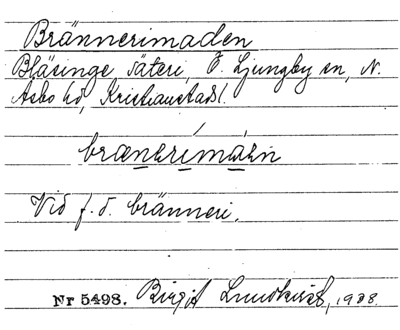 Brännerimaden
Bläsinge säteri, Ö. Ljungby sn, N.
Asbo hd, Kristianstads l.
Vid f. d. bränneri.
Nr 5498. Birgit Lundkvist, 1928.